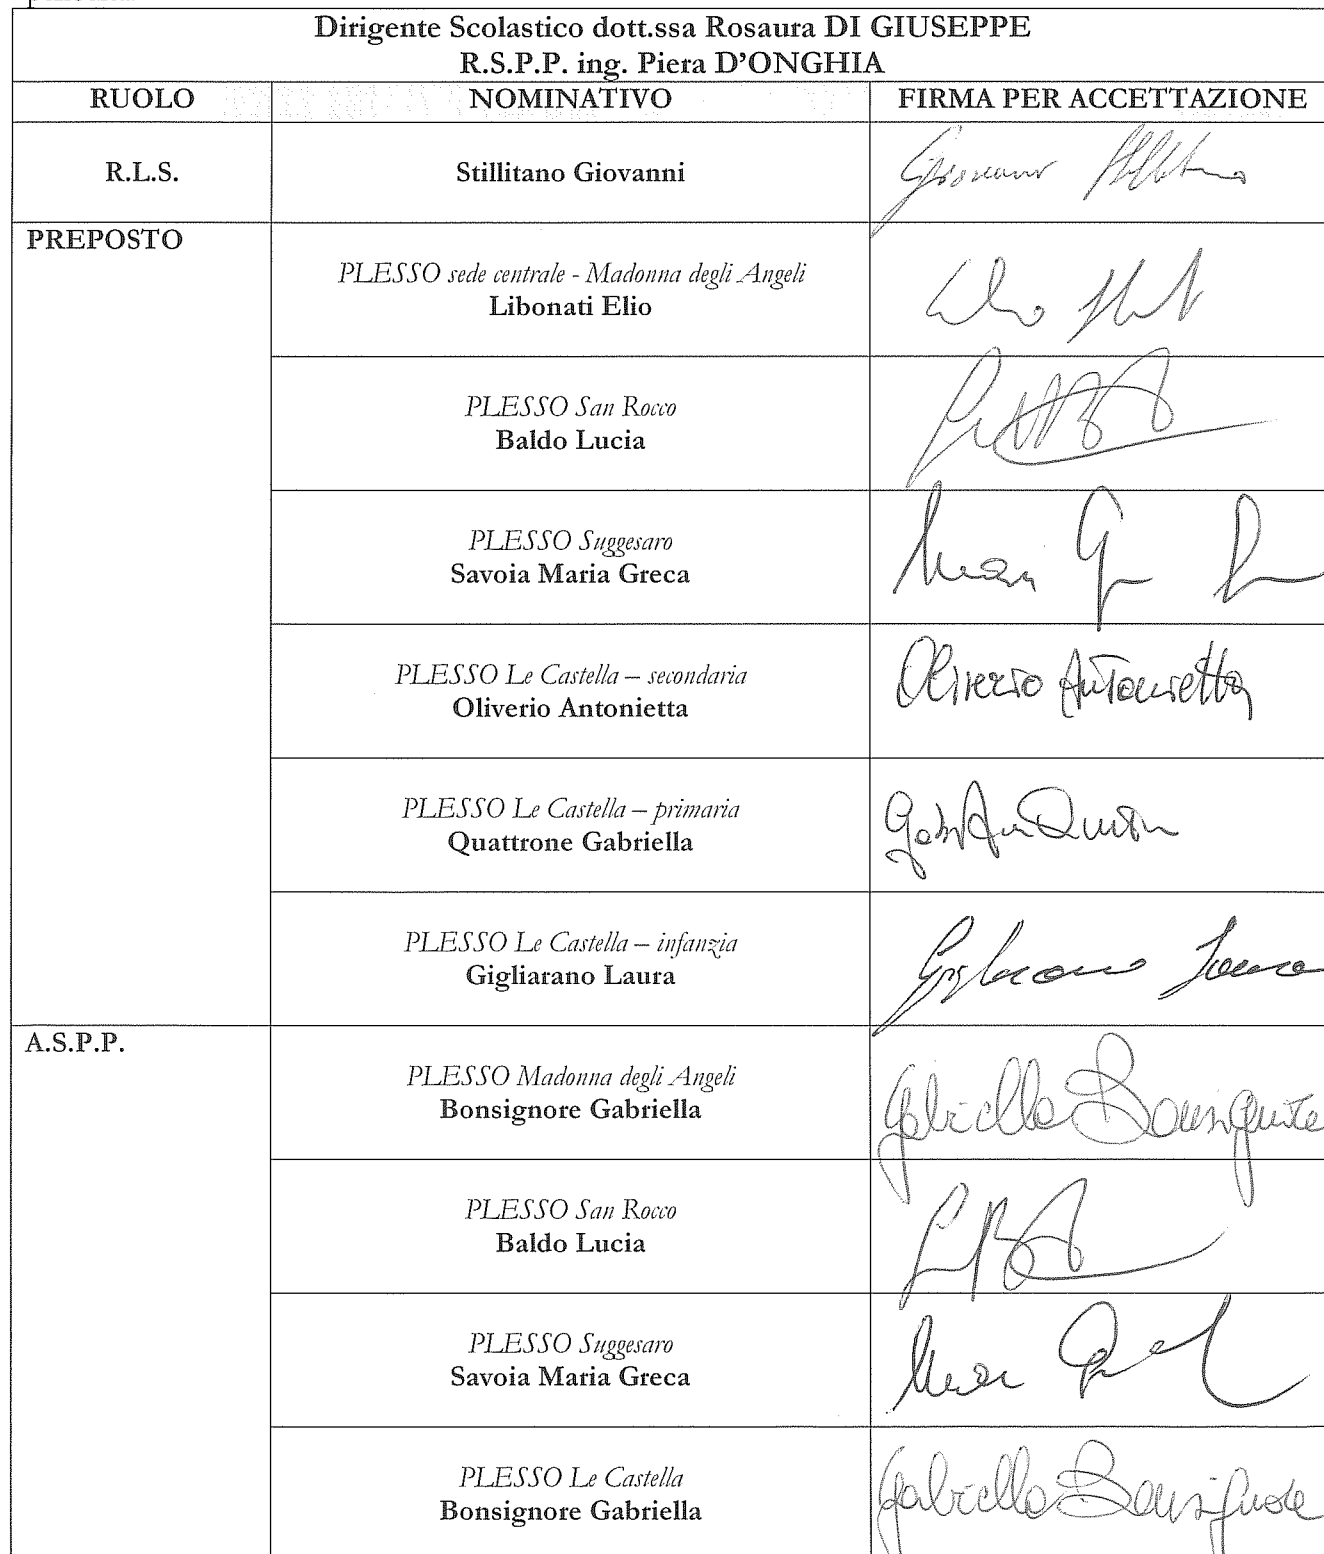 Dirigente Scolastico dott.ssa Rosaura DI GIUSEPPE
R.S.P.P. ing. Piera D'ONGHIA
RUOLO NOMINATIVO FIRMA PER ACCETTAZIONE
R.L.S. Stillitano Giovanni
PREPOSTO
PLESSO sede centrale - Madonna degli Angeli
Libonati Elio
PLESSO San Rocco
Baldo Lucia
PLESSO Suggesaro
Savoia Maria Greca
PLESSO Le Castella – secondaria
Oliverio Antonietta
Oliverio Antonietta
PLESSO Le Castella – primaria
Quattrone Gabriella
PLESSO Le Castella – infanzia
Gigliarano Laura
Gigliarano Laura
A.S.P.P.
PLESSO Madonna degli Angeli
Bonsignore Gabriella
Gabriella Bonsignore
PLESSO San Rocco
Baldo Lucia
PLESSO Suggesaro
Savoia Maria Greca
PLESSO Le Castella
Bonsignore Gabriella
Gabriella Bonsignore